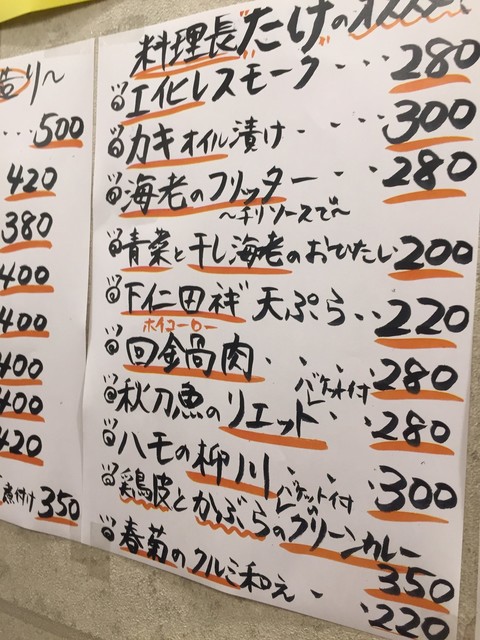 料理長"たけ"のオススメ
エイヒレスモーク・・・280
カキオイル漬け・・・・300
海老のフリッター・・・280
〜チリソースで〜
青菜と干し海老のおひたし 200
下仁田ネギ天ぷら・・220
ホイコーロー
回鍋肉・・・・280
秋刀魚のリエット 280
バケット付
ハモの柳川・・・300
鶏皮とかぶらのグリーンカレー
バケット付
350
春菊のクルミ和え・・220
造り〜
・・・500
420
380
400
400
400
400
420
煮付け 350